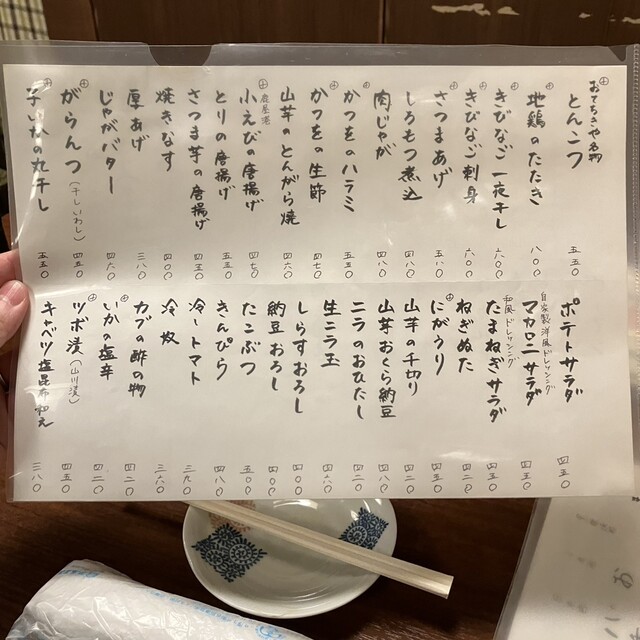 おてちきや名物
とんこつ 五五〇
地鶏のたたき 八〇〇
きびなご一夜干し 六〇〇
きびなご刺身 六〇〇
さつまあげ 五八〇
しろもつ煮込 四八〇
肉じゃが 四八〇
かつをのハラミ 五五〇
かつをの生節 四七〇
山芋のとんがら焼 四六〇
鹿屋港
小えびの唐揚げ 四七〇
とりの唐揚げ 五五〇
さつま芋の唐揚げ 四五〇
焼きなす 四〇〇
厚あげ 三八〇
じゃがバター 四六〇
がらんつ(干しいわし) 四五〇
芋いかの丸干し 五五〇
ポテトサラダ 四五〇
自家製洋風ドレッシング
マカロニサラダ 四五〇
和風ドレッシング
たまねぎサラダ 四五〇
ねぎぬた 四二〇
にがうり 四五〇
山芋の千切り 四二〇
山芋おくら納豆 四八〇
ニラのおひたし 四二〇
生ニラ玉 四六〇
しらすおろし 四〇〇
納豆おろし 四〇〇
たこぶつ 五〇〇
きんぴら 四八〇
冷トマト 三九〇
冷奴 三六〇
カブの酢の物 四二〇
いかの塩辛 四二〇
ツボ漬(山川漬) 四五〇
キャベツ塩昆布和え 三八〇